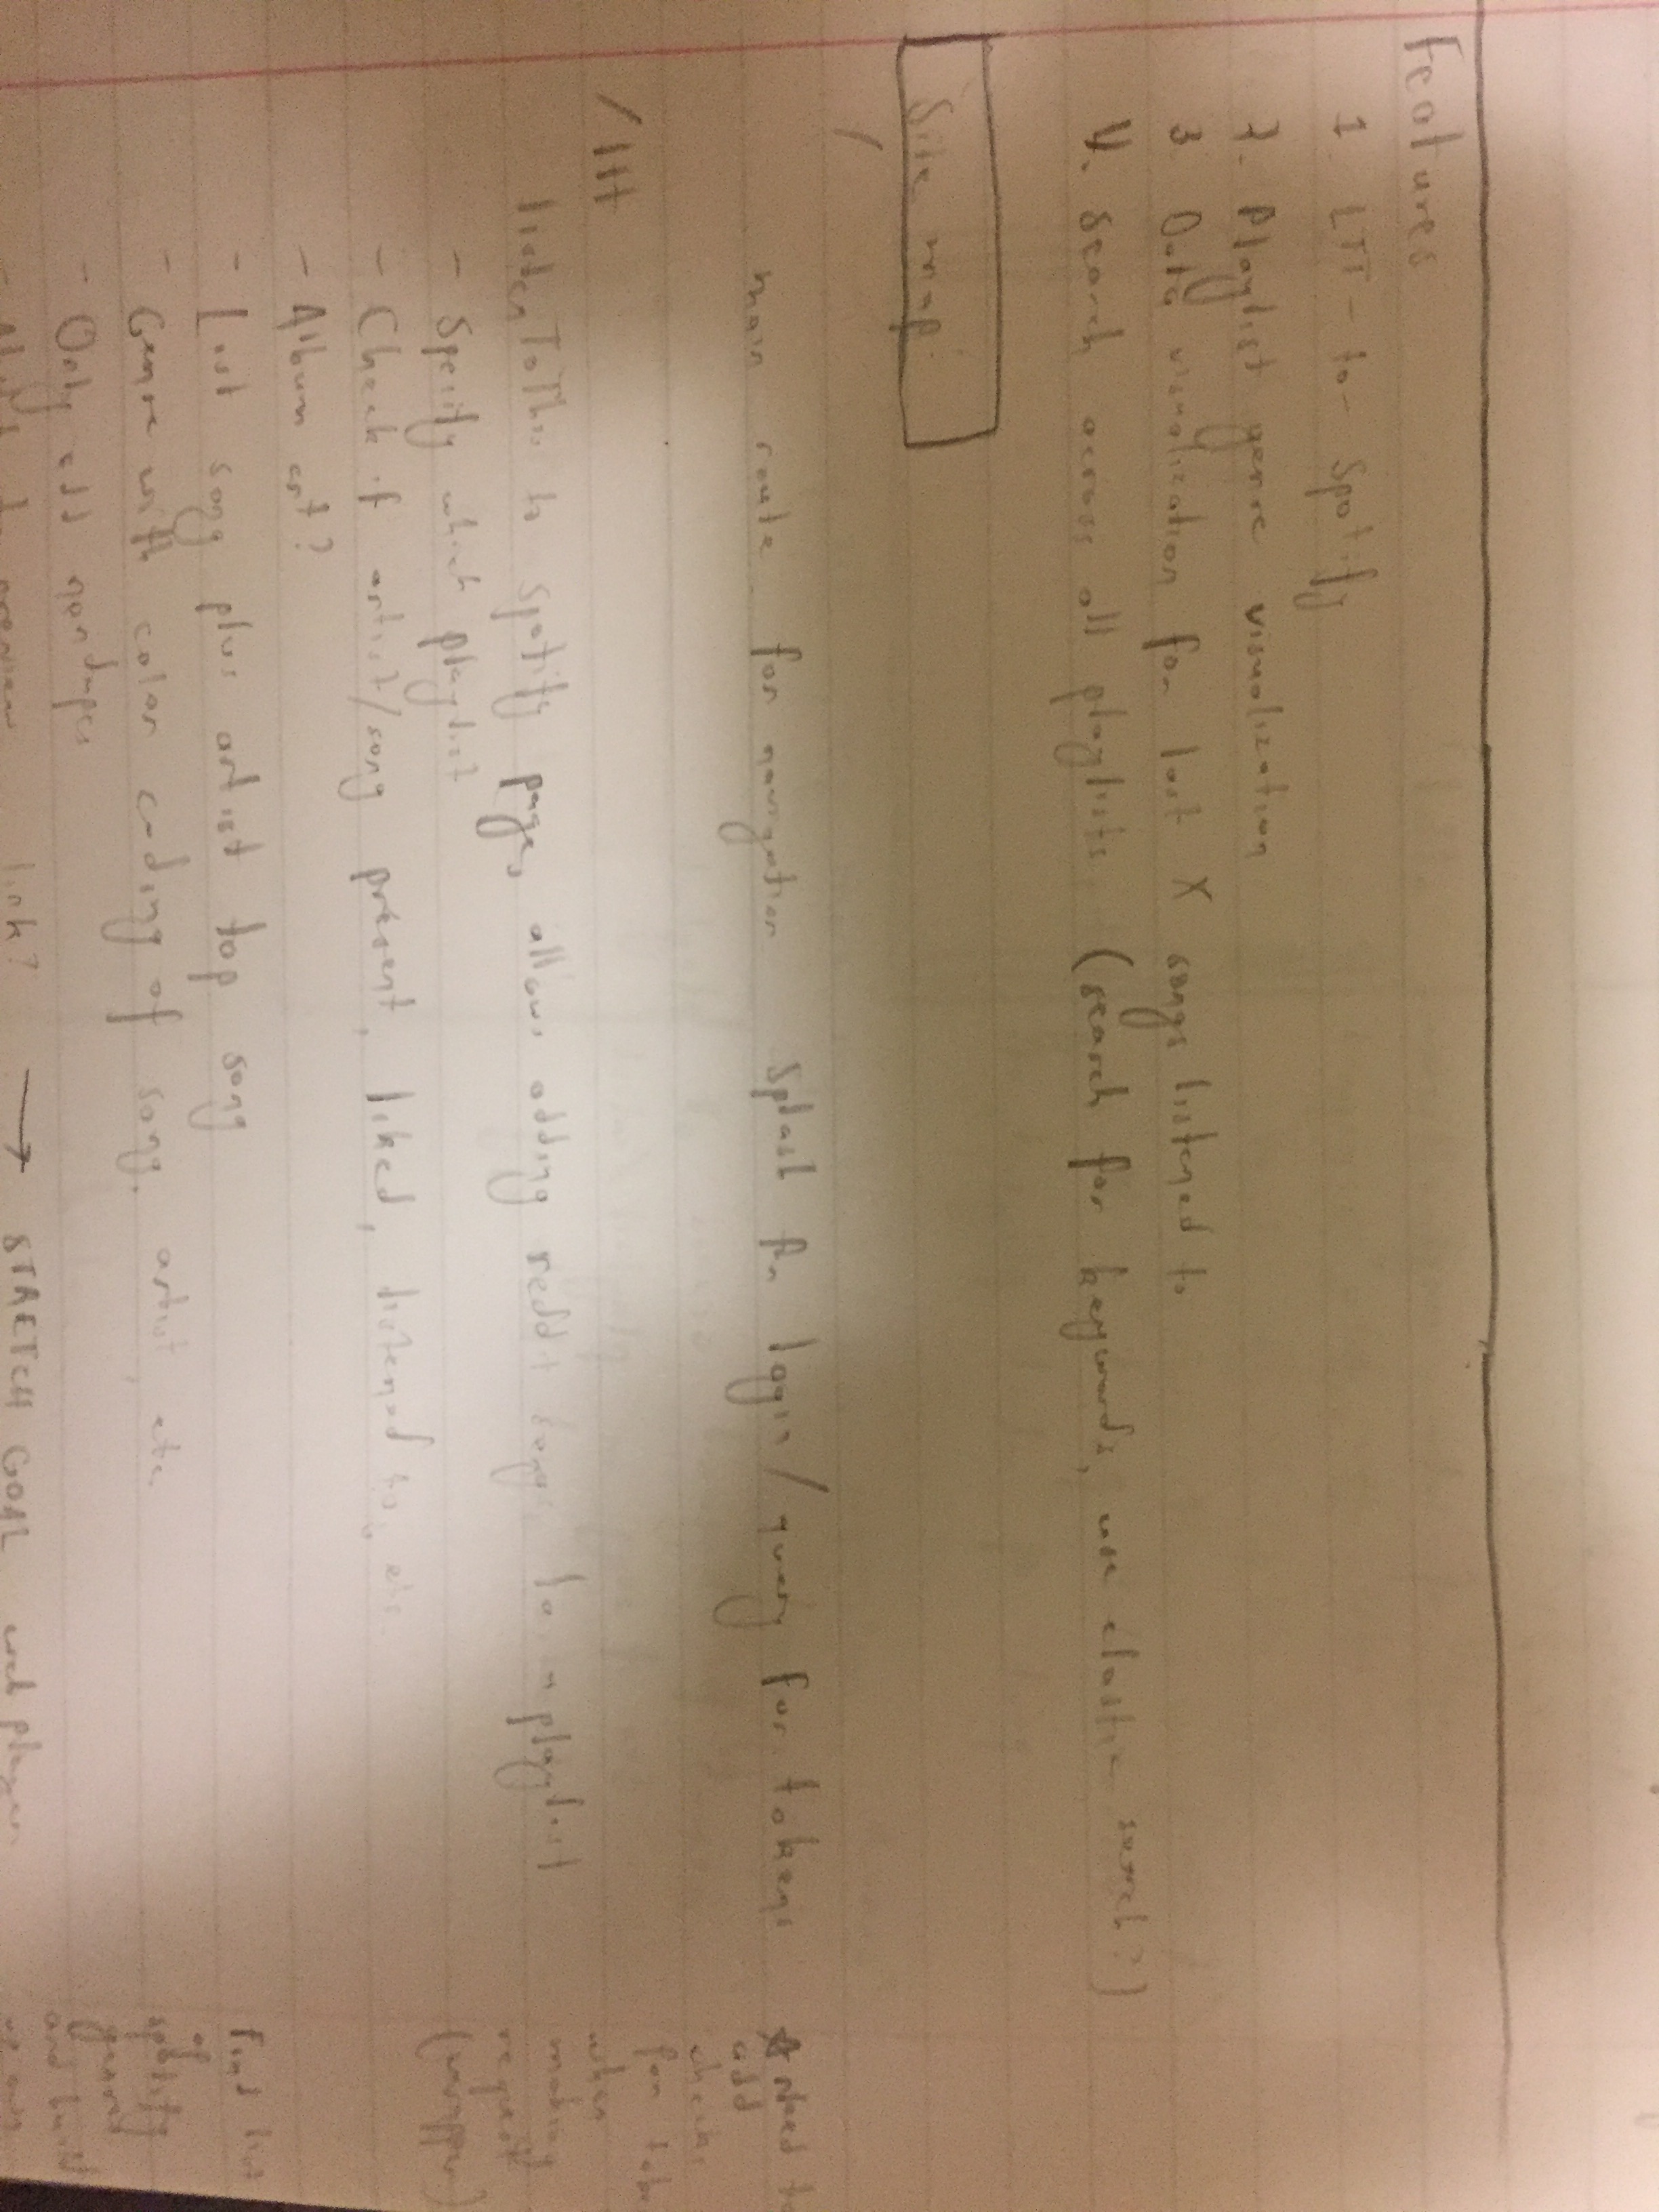 Features
1. LTT-to-Spotify
2. Playlist genre visualization
3 Data visualization for last X songs listened to
4. Search across all playlists (search for keywords, use elastic search?)
Site map
/
main route for navigation Splash for login/query for tokens
/ltt
listenToThis to Spotify page, allows adding reddit songs to a playlist
- Specify which playlist
- Check if artist/song present, liked, listened to, etc.
- Album art?
- List song plus artist top song
- Genre with color coding of song, artist, etc
- Only add nondupes
- preview link? → STRETCH GOAL web player
* Need to
add
checks
for
when
making
request
(wrapper)
Find list
of
spotify
genres
and build